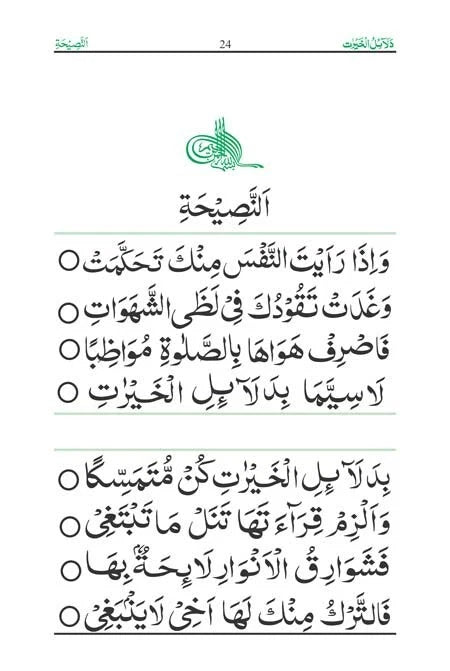 دَلَآئِلُ الْخَيْرٰت
24
اَلنَّصِيْحَةِ
اَلنَّصِيْحَةِ
وَاِذَا رَاَيْتَ النَّفْسَ مِنْكَ تَحَكَّمَتْ ○
وَغَدَتْ تَقُوْدُكَ فِيْ لَظَى الشَّهَوَاتِ ○
فَاصْرِفْ هَوَاهَا بِالصَّلٰوةِ مُوَاظِبًا ○
لَاسِيَّمَا بِدَلَآئِلِ الْخَيْرٰتِ ○
بِدَلَآئِلِ الْخَيْرٰتِ كُنْ مُّتَمَسِّكًا ○
وَالْزِمْ قِرَآءَتَهَا تَنَلْ مَا تَبْتَغِيْ ○
فَشَوَارِقُ الْاَنْوَارِ لَائِحَةٌۢ بِهَا ○
فَالتَّرْكُ مِنْكَ لَهَا اَخِيْ لَايَنْۢبَغِيْ ○